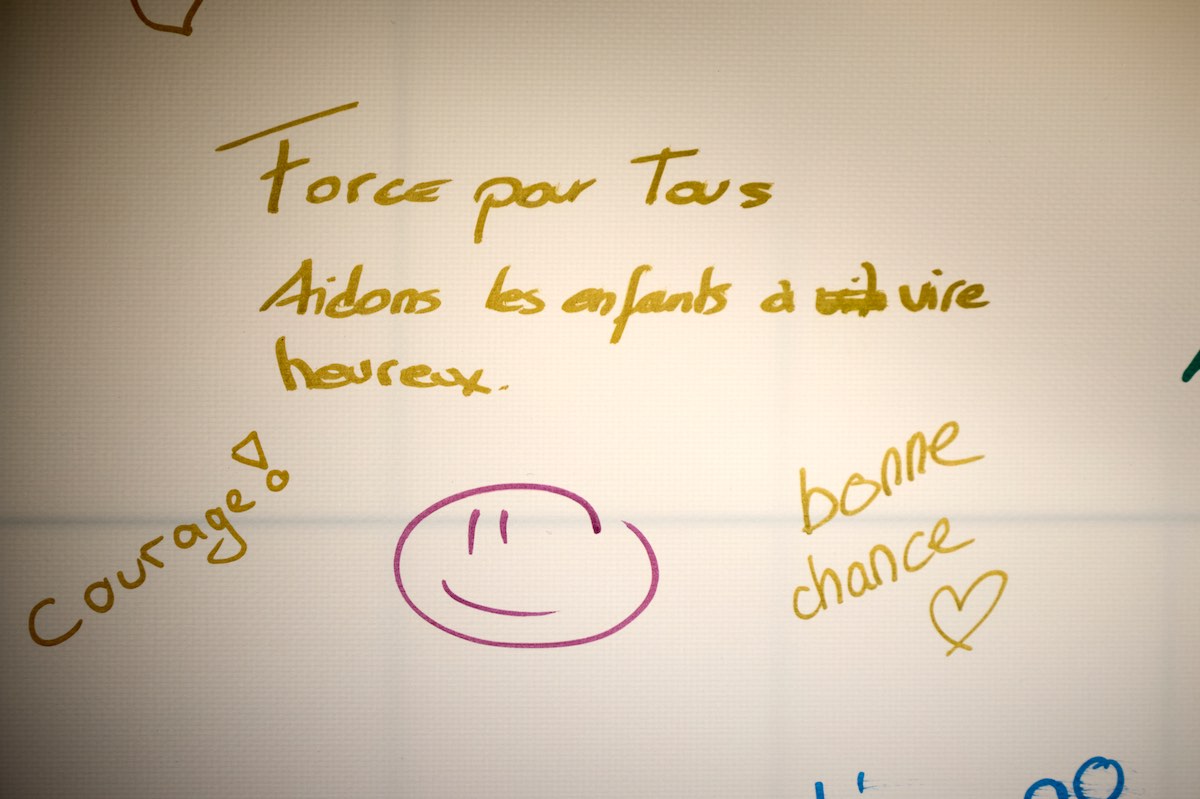 Force pour Tous
Aidons les enfants à vire
heureux.
Courage!
bonne
chance